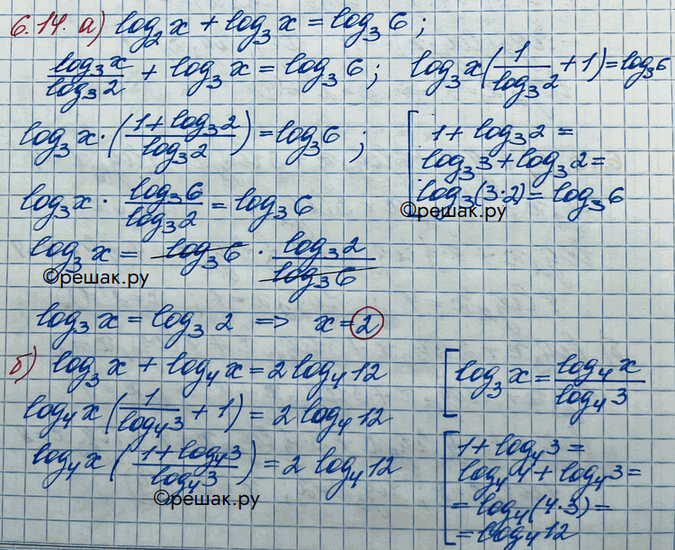 6.14. а) log₂x + log₃x = log₃6;
log₃x/log₃2 + log₃x = log₃6; log₃x(1/log₃2 + 1) = log₃6
log₃x · ((1 + log₃2)/log₃2) = log₃6;
[1 + log₃2 =
log₃3 + log₃2 =
log₃(3·2) = log₃6
©решак.ру
log₃x · log₃6/log₃2 = log₃6
log₃x = log₃6 · log₃2/log₃6
©решак.ру
log₃x = log₃2 => x = 2
б) log₃x + log₄x = 2log₄12
[log₃x = log₄x/log₄3
log₄x(1/log₄3 + 1) = 2log₄12
log₄x((1 + log₄3)/log₄3) = 2log₄12
©решак.ру
[1 + log₄3 =
log₄4 + log₄3 =
= log₄(4·3) =
= log₄12